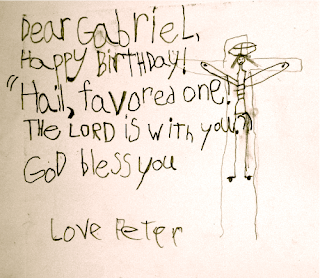 Dear Gabriel,
Happy Birthday!
"Hail, favored one!
The LORD is with you."
God bless you
Love Peter